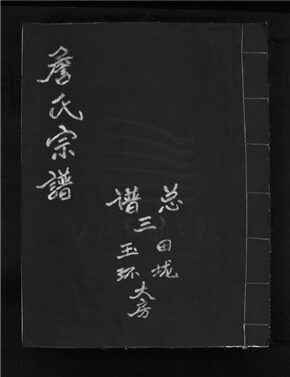 詹氏宗譜
总
谱三
田垅
玉环
大房